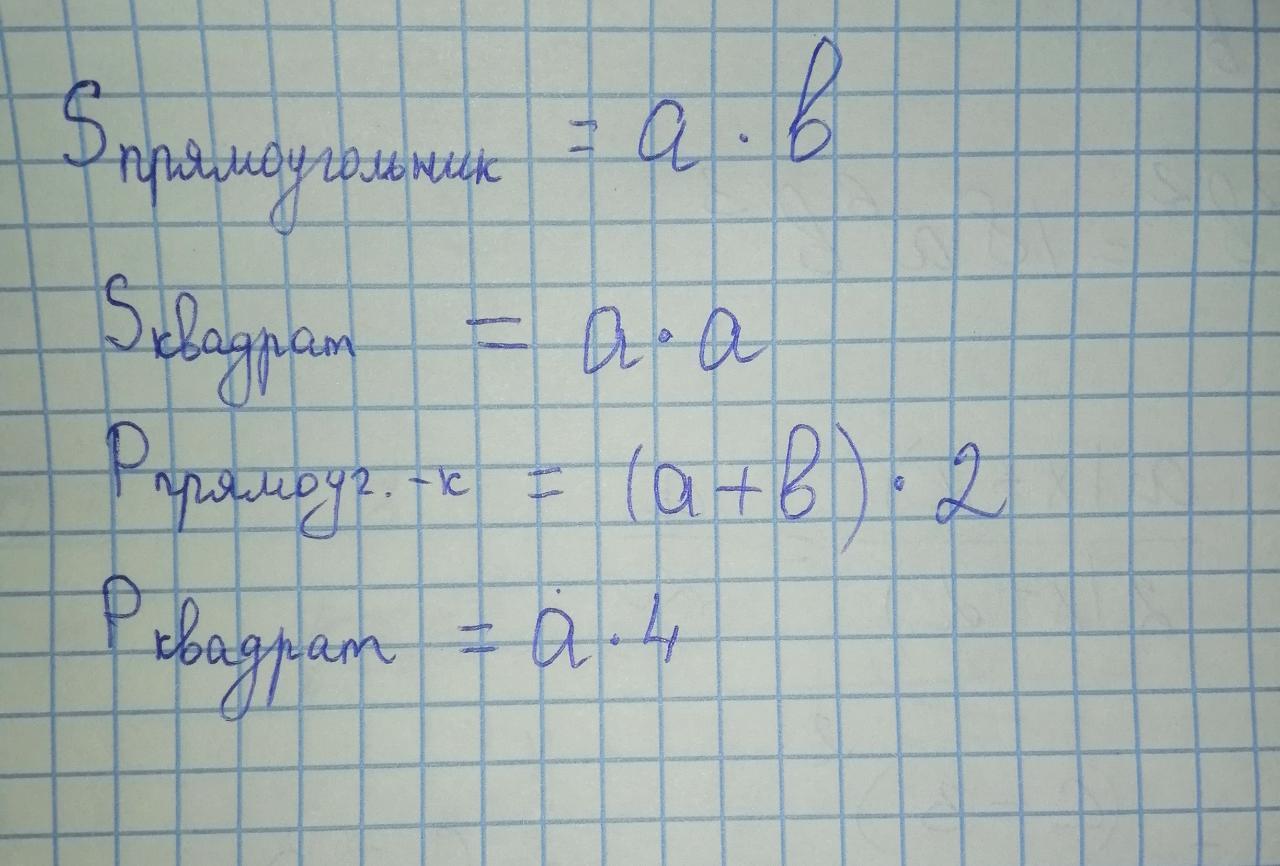 Sпрямоугольник = a · b
Sквадрат = a · a
Pпрямоуг.-к = (a + b) · 2
Pквадрат = a · 4